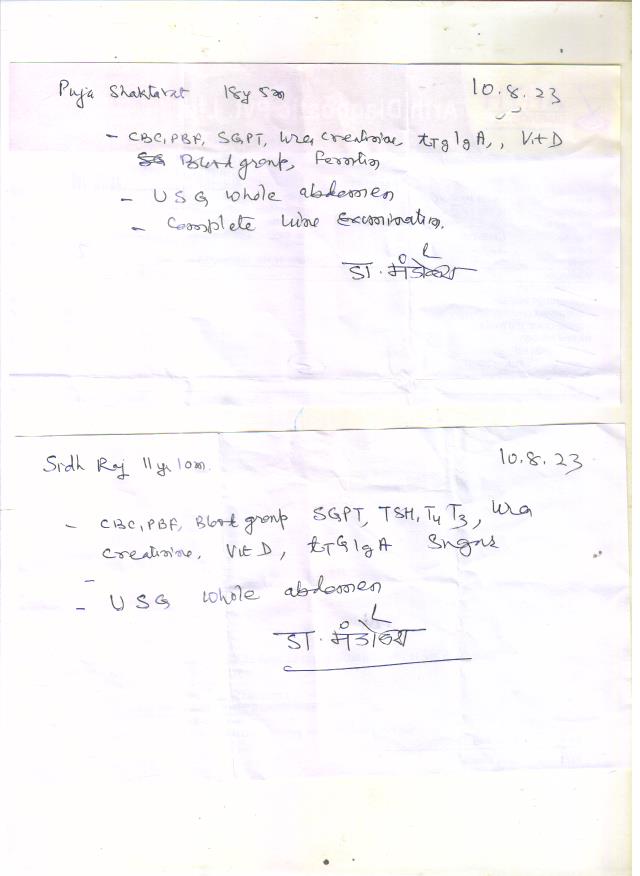 Puja Shaktawat 18y 5m 10.8.23
- CBC, PBF, SGPT, Urea Creatinine, tTg IgA,, Vit D
Blood group, Ferritin
- USG whole abdomen
- Complete Urine Examination.
डा.
Sidh Raj 11 yr 10m 10.8.23
- CBC, PBF, Blood group SGPT, TSH, T4 T3, Urea
Creatinine, Vit D, tTG IgA Sugar
- USG whole abdomen
डा.